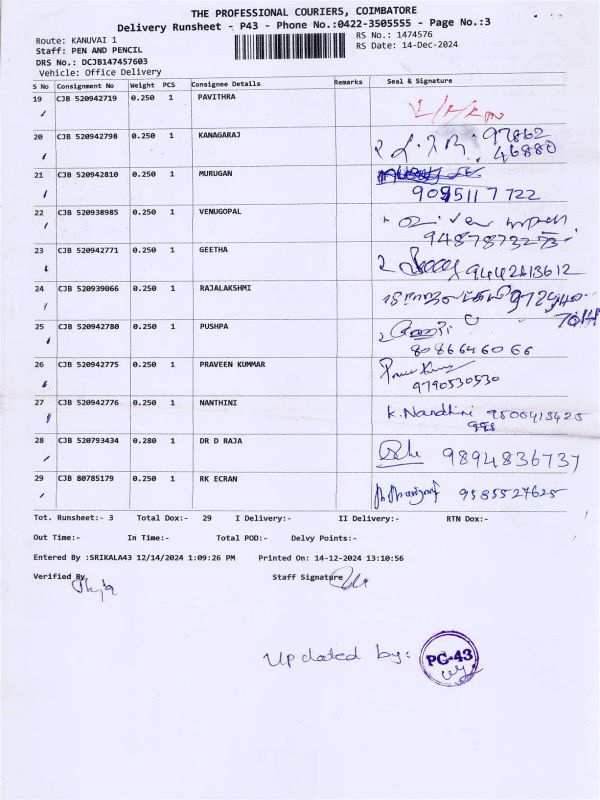 THE PROFESSIONAL COURIERS, COIMBATORE
Delivery Runsheet - P43 - Phone No.:0422-3505555 - Page No.:3
Route: KANUVAI 1
RS No.: 1474576
Staff: PEN AND PENCIL
RS Date: 14-Dec-2024
DRS No.: DCJB147457603
Vehicle: Office Delivery
S No Consignment No Weight PCS Consignee Details Remarks Seal & Signature
19 CJB 520942719 0.250 1 PAVITHRA
20 CJB 520942798 0.250 1 KANAGARAJ 97862
46880
21 CJB 520942810 0.250 1 MURUGAN
9095117722
22 CJB 520938985 0.250 1 VENUGOPAL
9487873273
23 CJB 520942771 0.250 1 GEETHA
9442213612
24 CJB 520939066 0.250 1 RAJALAKSHMI
25 CJB 520942780 0.250 1 PUSHPA
8086646066
26 CJB 520942775 0.250 1 PRAVEEN KUMMAR
9790530530
27 CJB 520942776 0.250 1 NANTHINI K. Nandhini
28 CJB 520793434 0.280 1 DR D RAJA 9894836737
29 CJB 80785179 0.250 1 RK ECRAN 9585527625
Tot. Runsheet:- 3 Total Dox:- 29 I Delivery:- II Delivery:- RTN Dox:-
Out Time:- In Time:- Total POD:- Delvy Points:-
Entered By :SRIKALA43 12/14/2024 1:09:26 PM Printed On: 14-12-2024 13:10:56
Verified By Staff Signature
Updated by: PC-43